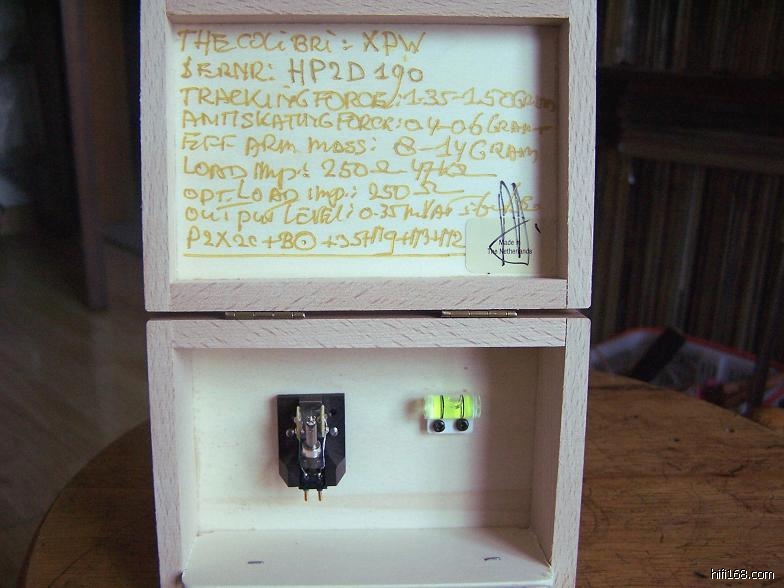 THE COLIBRI: XPW
SERNR: HP2D 190
TRACKING FORCE: 1.35-1.50 GRAM
ANTISKATING FORCE: 0.4-0.6 GRAM
EFF ARM MASS: 8-14 GRAM
LOAD IMP: 250Ω-47KΩ
OPT. LOAD IMP: 250Ω
OUTPUT LEVEL: 0.35 MV AT
Made in
The Netherlands
hifi168.com